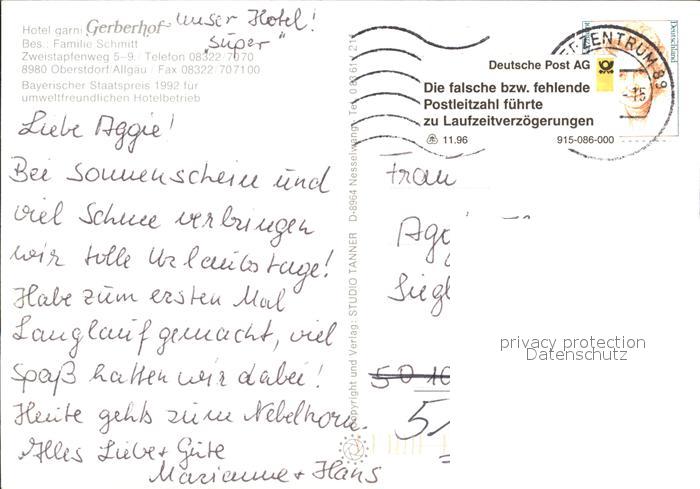 Hotel garni Gerberhof
Bes.: Familie Schmitt
Zweistapfenweg 5–9 / Telefon 08322/7070
8980 Oberstdorf/Allgäu / Fax 08322/707100
Bayerischer Staatspreis 1992 für
umweltfreundlichen Hotelbetrieb
Unser Hotel!
„super"
Liebe Aggie!
Bei Sonnenschein und
viel Schnee verbringen
wir tolle Urlaubstage!
Habe zum ersten Mal
Langlauf gemacht, viel
Spaß hatten wir dabei!
Heute gehts zum Nebelhorn.
Alles Liebe + Gute
Marianne + Hans
Copyright und Verlag: STUDIO TANNER D-8964 Nesselwang
Deutsche Post AG
Die falsche bzw. fehlende
Postleitzahl führte
zu Laufzeitverzögerungen
11.96
915-086-000
ZENTRUM 89
Frau
Agg
Siegl
50 10
51
privacy protection
Datenschutz